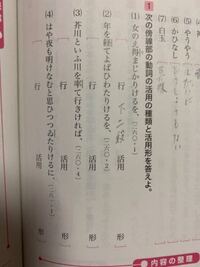 (5) やうやう
(6) かひなし
(7) 白玉
1 次の傍線部の動詞の活用の種類と活用形を答えよ。
(1) 女のえ得まじかりけるを、(六〇・1)
行 下二段 活用 形
(2) 年を経てよばひわたりけるを、(六〇・1)
行 活用 形
(3) 芥川といふ川を率て行きければ、(六〇・4)
行 活用 形
(4) はや夜も明けなむと思ひつつゐたりけるに、
行 活用 形
内容の整理